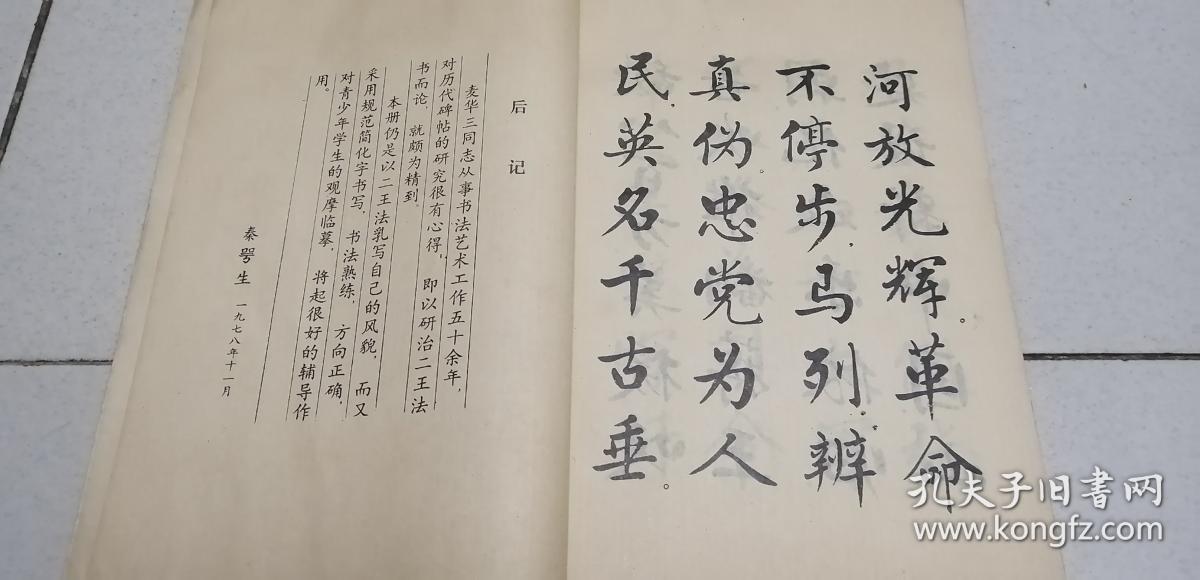 河放光辉。革命
不停步，马列辨
真伪。忠党为人
民，英名千古垂。
后记
麦华三同志从事书法艺术工作五十余年，
对历代碑帖的研究很有心得，即以研治二王法
书而论，就颇为精到。
本册仍是以二王法乳写自己的风貌，而又
采用规范简化字书写，书法熟练，方向正确，
对青少年学生的观摩临摹，将起很好的辅导作
用。
秦咢生 一九七八年十一月
孔夫子旧书网
www.kongfz.com